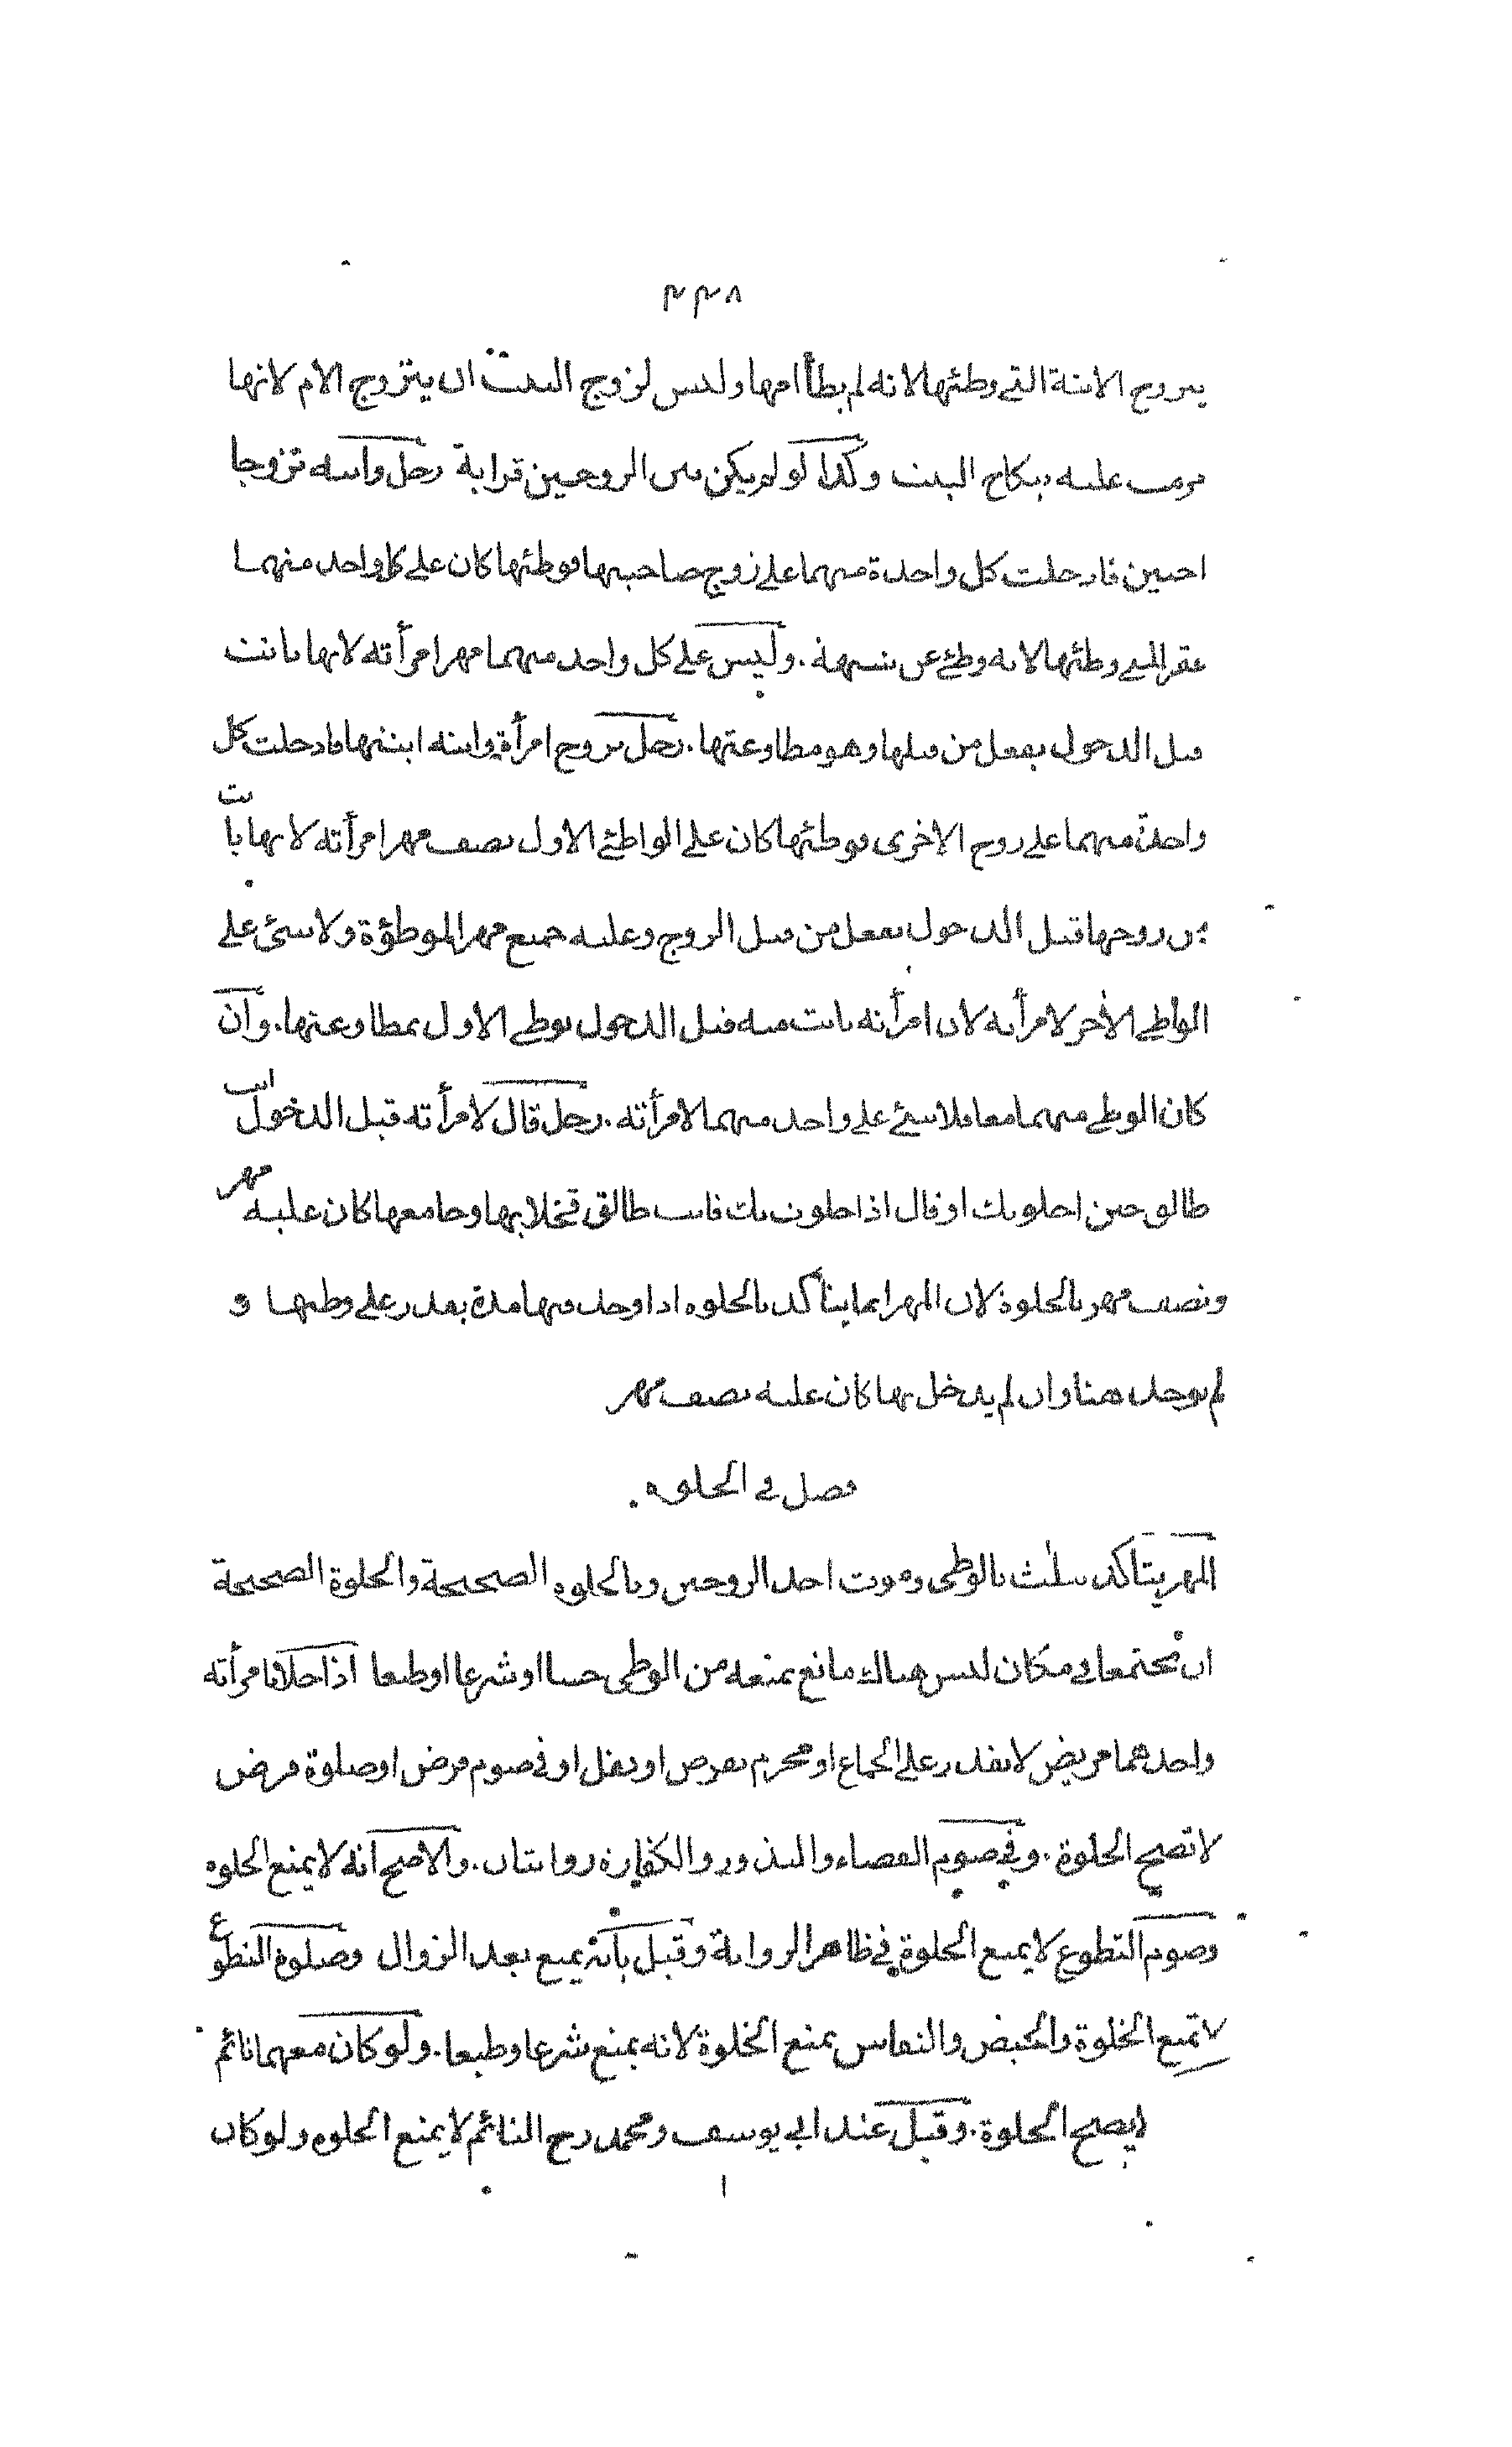 ٣٣٨
يتزوج الابنة التي وطئها لانه لم يطأ امها وليس لزوج البنت ان يتزوج الام لانها
حرمت عليه بنكاح البنت وكذا لو لم يكن بين الزوجين قرابة رجل وابنه تزوجا
اختين فادخلت كل واحدة منهما على زوج صاحبتها فوطئها كان على كل واحد منهما
عقر التي وطئها لانه وطئ عن شبهة . وليس على كل واحد منهما مهر امرأته لانها بانت
قبل الدخول بفعل من قبلها وهو مطاوعتها . رجل تزوج امرأة وابنه ابنتها فادخلت كل
واحدة منهما على زوج الاخرى فوطئها كان على الواطئ الاول نصف مهر امرأته لانها بانت
من زوجها قبل الدخول بفعل من قبل الزوج وعليه جميع مهر الموطؤة ولا شئ على
الواطي الآخر لامرأته لان امرأته بانت منه قبل الدخول بوطي الاول بمطاوعتها . وان
كان الوطي منهما معا فلا شئ على واحد منهما لامرأته . رجل قال لامرأته قبل الدخول انت
طالق حين اخلو بك او قال اذا خلوت بك فانت طالق فخلا بها وجامعها كان عليه مهر
ونصف مهر بالخلوة لان المهر انما يتأكد بالخلوه اذا وجد فيها مدة يقدر على وطيها و
لم يوجد هنا وان لم يدخل بها كان عليه نصف مهر
فصل في الخلوه .
المهر يتأكد بثلث بالوطي وموت احد الزوجين وبالخلوه الصحيحة والخلوة الصحيحة
ان يجتمعا في مكان ليس هناك مانع يمنعه من الوطي حسا او شرعا او طبعا اذا خلا بامرأته
واحدهما مريض لا يقدر على الجماع او محرم بفرض او نفل او في صوم فرض او صلوة فرض
لا تصح الخلوة . وفي صوم القضاء والنذور والكفارة روايتان . والاصح انه لا يمنع الخلوه
وصوم التطوع لا يمنع الخلوة في ظاهر الرواية وقيل بانه يمنع بعد الزوال وصلوة التطوع
لا تمنع الخلوة والحيض والنفاس يمنع الخلوة لانه يمنع شرعا وطبعا . ولو كان معهما نائم
لا يصح الخلوة . وقيل عند ابي يوسف ومحمد رح النائم لا يمنع الخلوه ولو كان